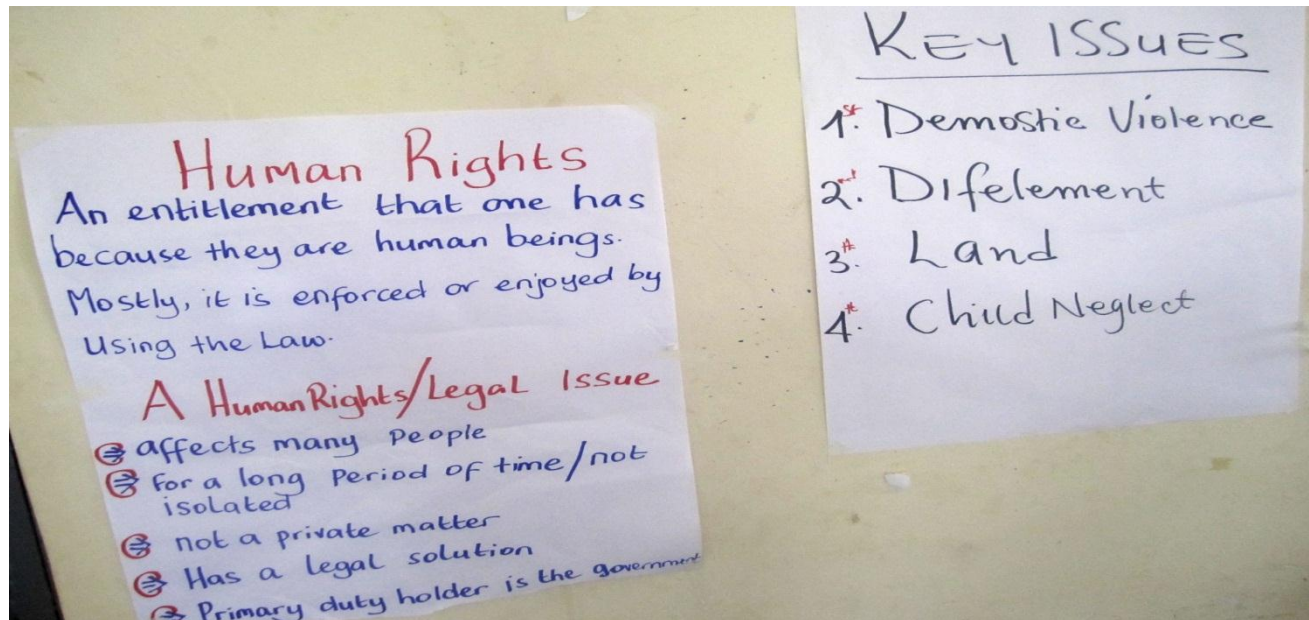 Human Rights
An entitlement that one has
because they are human beings.
Mostly, it is enforced or enjoyed by
Using the Law.
A Human Rights/Legal Issue
affects many People
for a long Period of time/not
isolated
not a private matter
Has a legal solution
Primary duty holder is the government
KEY ISSUES
1st. Demostic Violence
2nd. Difelement
3th. Land
4th. Child Neglect